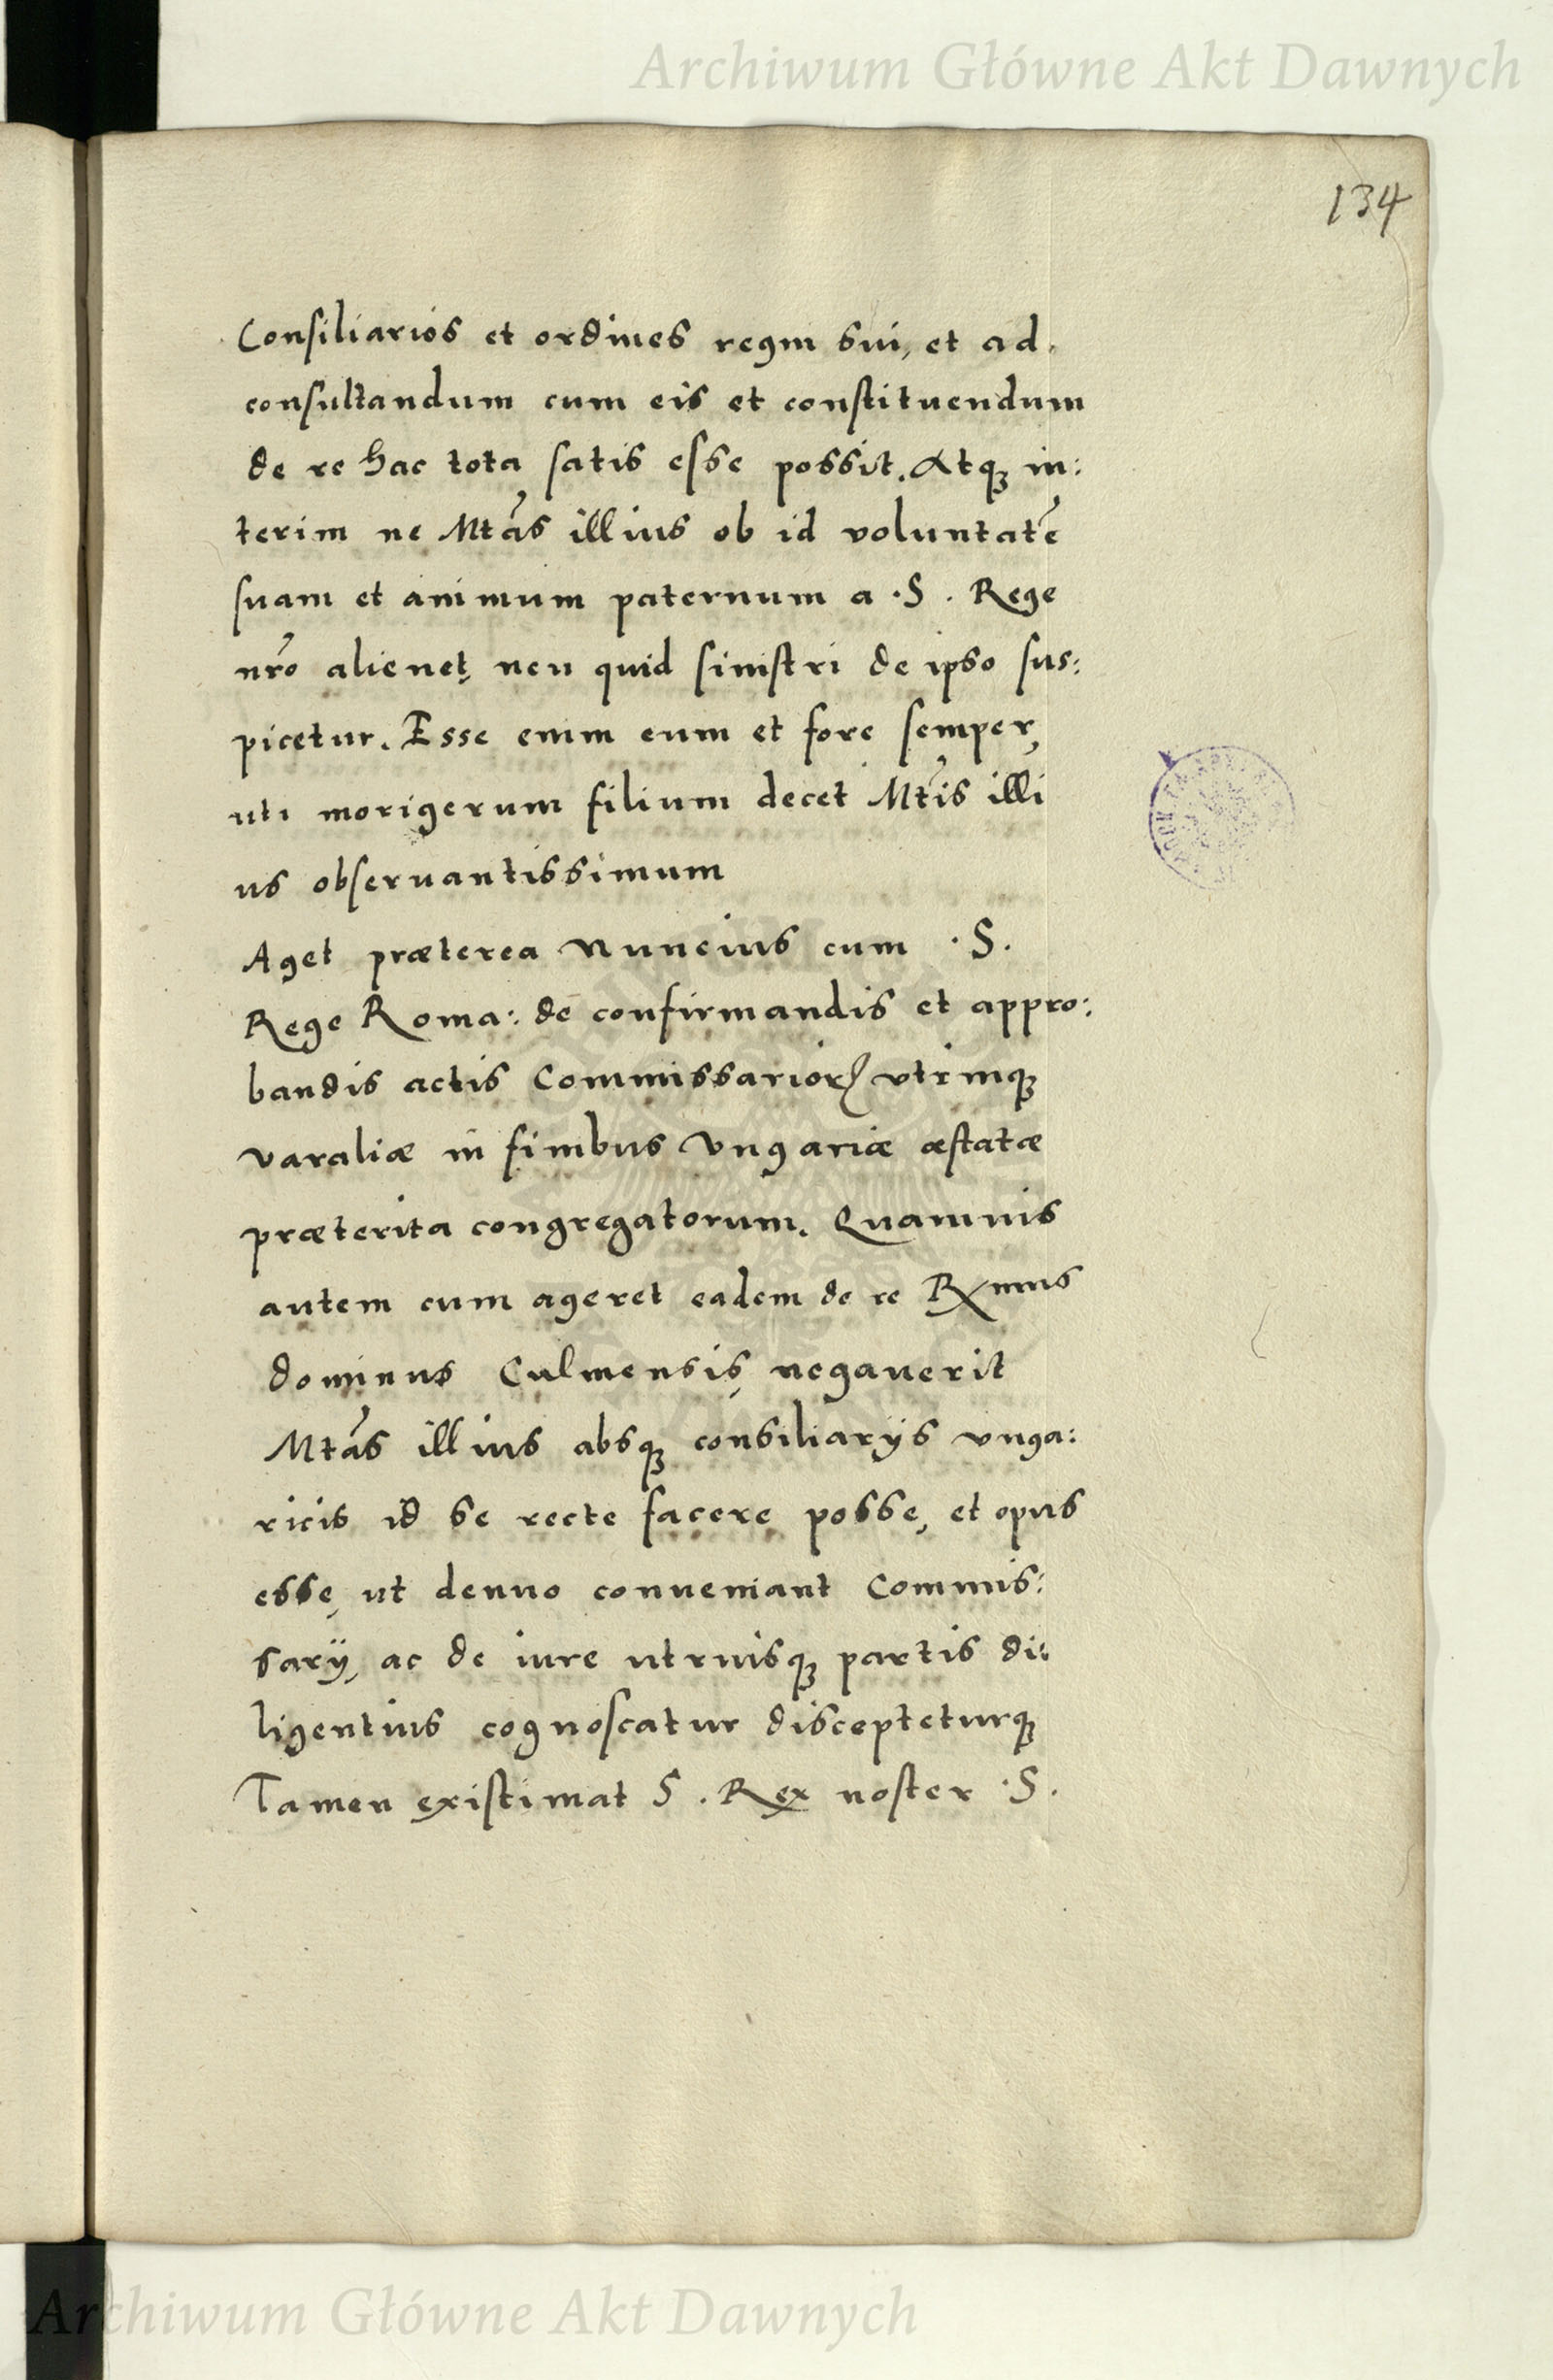 Archiwum Główne Akt Dawnych
134
Consiliarios et ordines regni sui, et ad
consultandum cum eis et constituendum
de re hac tota satis esse possit. Atq₃ in:
terim ne Mtãs illius ob id voluntatẽ
suam et animum paternum a .S. Rege
nr̃o alienet, neu quid sinistri de ipso sus:
picetur. Esse enim eum et fore semper,
uti morigerum filium decet Mt̃is illi
us observantissimum
Aget præterea nuncius cum .S.
Rege Roma: de confirmandis et appro:
bandis actis Commissarioꝝ vtrinq₃
varaliæ in finibus Vngariæ æstatæ
præterita congregatorum. Quamuis
autem cum ageret eadem de re Rx̃mus
dominus Culmensis, negauerit
Mtãs illius absq₃ consiliarijs vnga:
ricis id se recte facere posse, et opus
esse, ut denuo conueniant Commis:
sarij, ac de iure utriusq₃ partis di:
ligentius cognoscatur discepteturq₃
Tamen existimat S. Rex noster .S.
Archiwum Główne Akt Dawnych